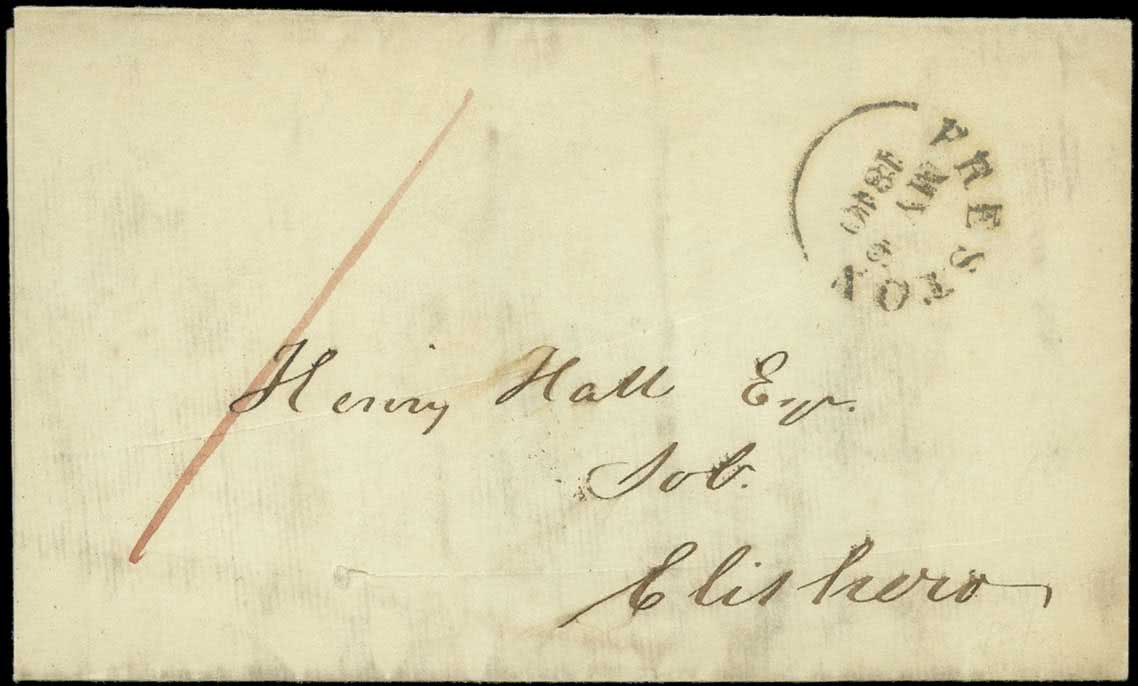 PRESTON
MY 6
1840
Henry Hall Esqr.
Sol.
Clithero